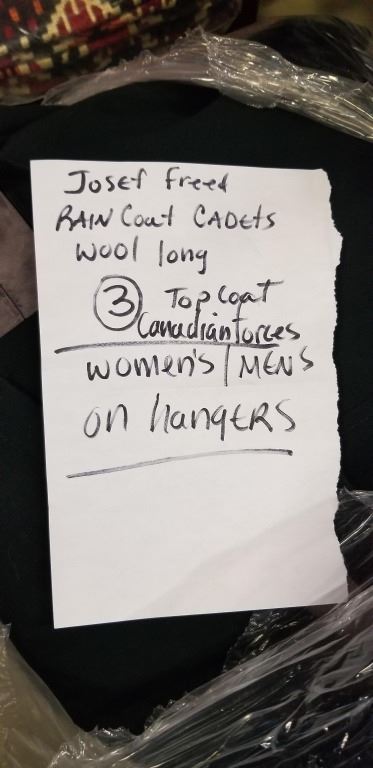 Josef Freed
RAIN Coat CADETS
WOOL long
3 Top Coat
Canadian forces
women's | MENS
on hangERS